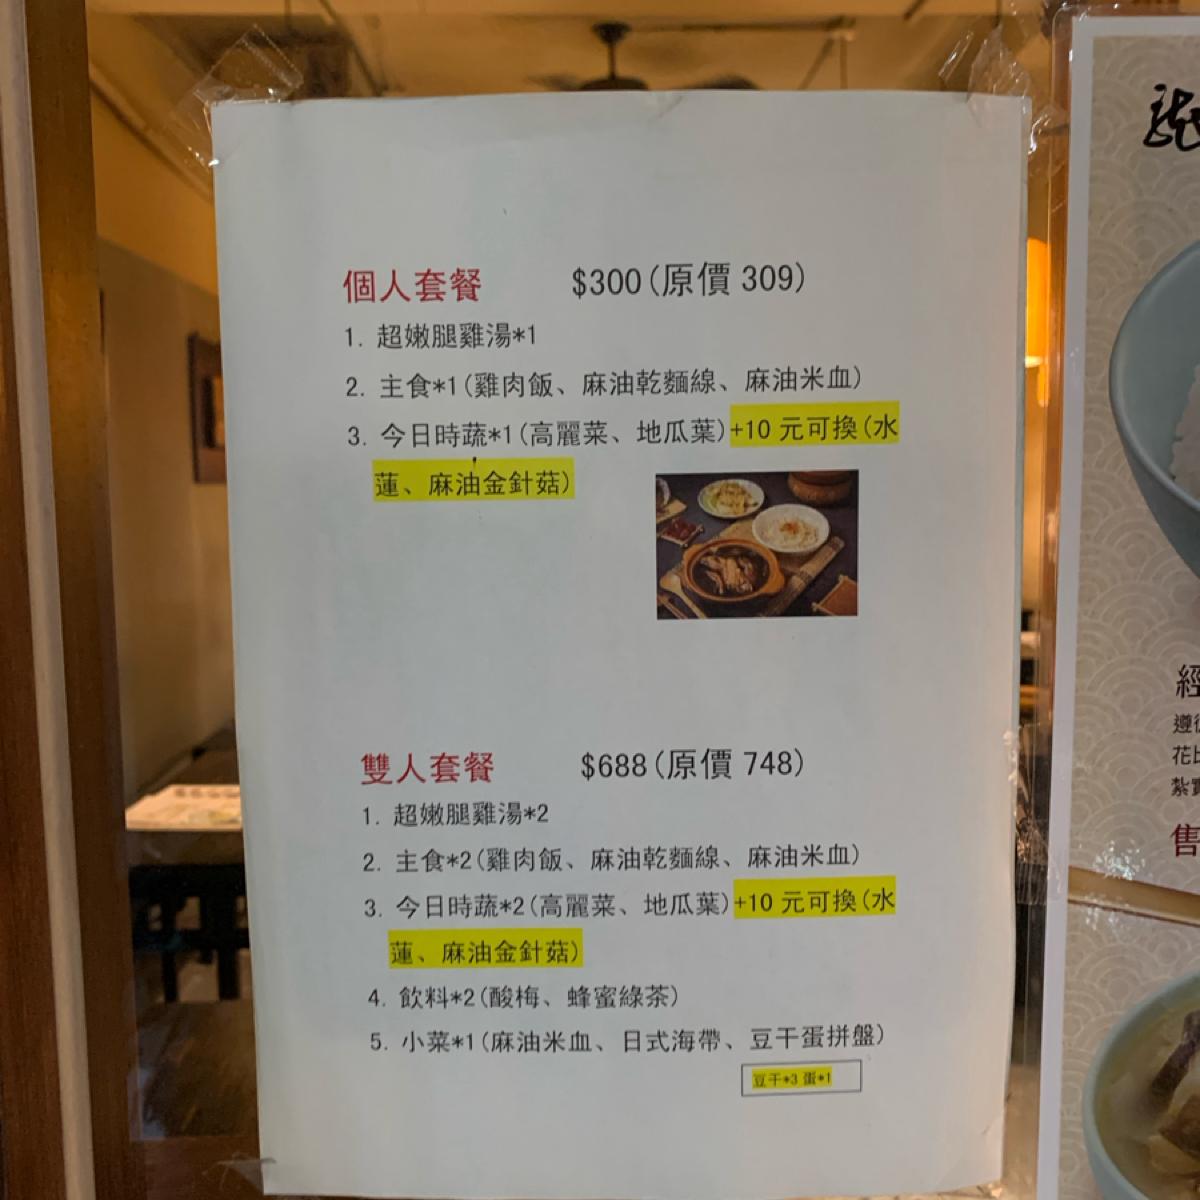 個人套餐 $300(原價 309)
1. 超嫩腿雞湯*1
2. 主食*1(雞肉飯、麻油乾麵線、麻油米血)
3. 今日時蔬*1(高麗菜、地瓜葉)+10 元可換(水
蓮、麻油金針菇)
雙人套餐 $688(原價 748)
1. 超嫩腿雞湯*2
2. 主食*2(雞肉飯、麻油乾麵線、麻油米血)
3. 今日時蔬*2(高麗菜、地瓜葉)+10 元可換(水
蓮、麻油金針菇)
4. 飲料*2(酸梅、蜂蜜綠茶)
5. 小菜*1(麻油米血、日式海帶、豆干蛋拼盤)
豆干*3 蛋*1
龍
經
遵
花
紮
售